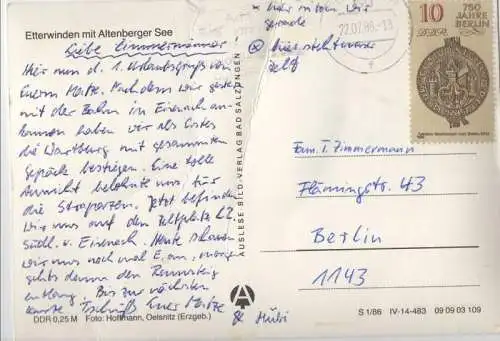 Etterwinden mit Altenberger See
Liebe Zimmermänner!
Hier nun d. 1. Urlaubsgruß von
Eurem Matze. Nachdem wir gestern
mit der Bahn in Eisenach an-
kommen haben wir als erstes
die Wartburg mit gesammten
Gepäck bestiegen. Eine tolle
Aussicht belohnte uns, für
die Strapazen. Jetzt befinden
wir uns auf den Zeltplatz
südl. v. Eisenach. Heute schauen
wir uns noch mal E. an, morgen
gehts dann den Rennsteig
entlang. Bis zur nächsten
Karte Tschüß Euer Matze
& Hübi
DDR 0,25 M Foto: Hoffmann, Oelsnitz (Erzgeb.)
AUSLESE BILD-VERLAG BAD SALZUNGEN
wir
gerade
hier steht unser
Zelt
22.07.88-13
10
750
JAHRE
BERLIN
DDR
Fam. T. Zimmermann
Flämingstr. 43
Berlin
1143
S 1/86 IV-14-483 09 09 03 109